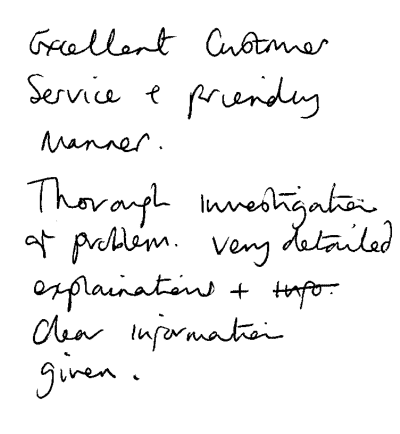 Excellent Customer
Service & friendly
Manner.
Thorough investigation
of problem. Very detailed
explainations + info.
Clear information
given.